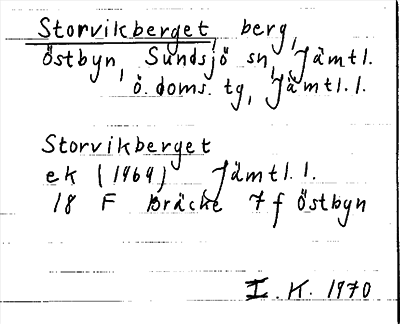 Storvikberget, berg,
Östbyn, Sundsjö sn, Jämtl.
ö. doms. tg, Jämtl. l.
Storvikberget
ek (1969) Jämtl. l.
18 F Bräcke 7 f Östbyn
I. K. 1970